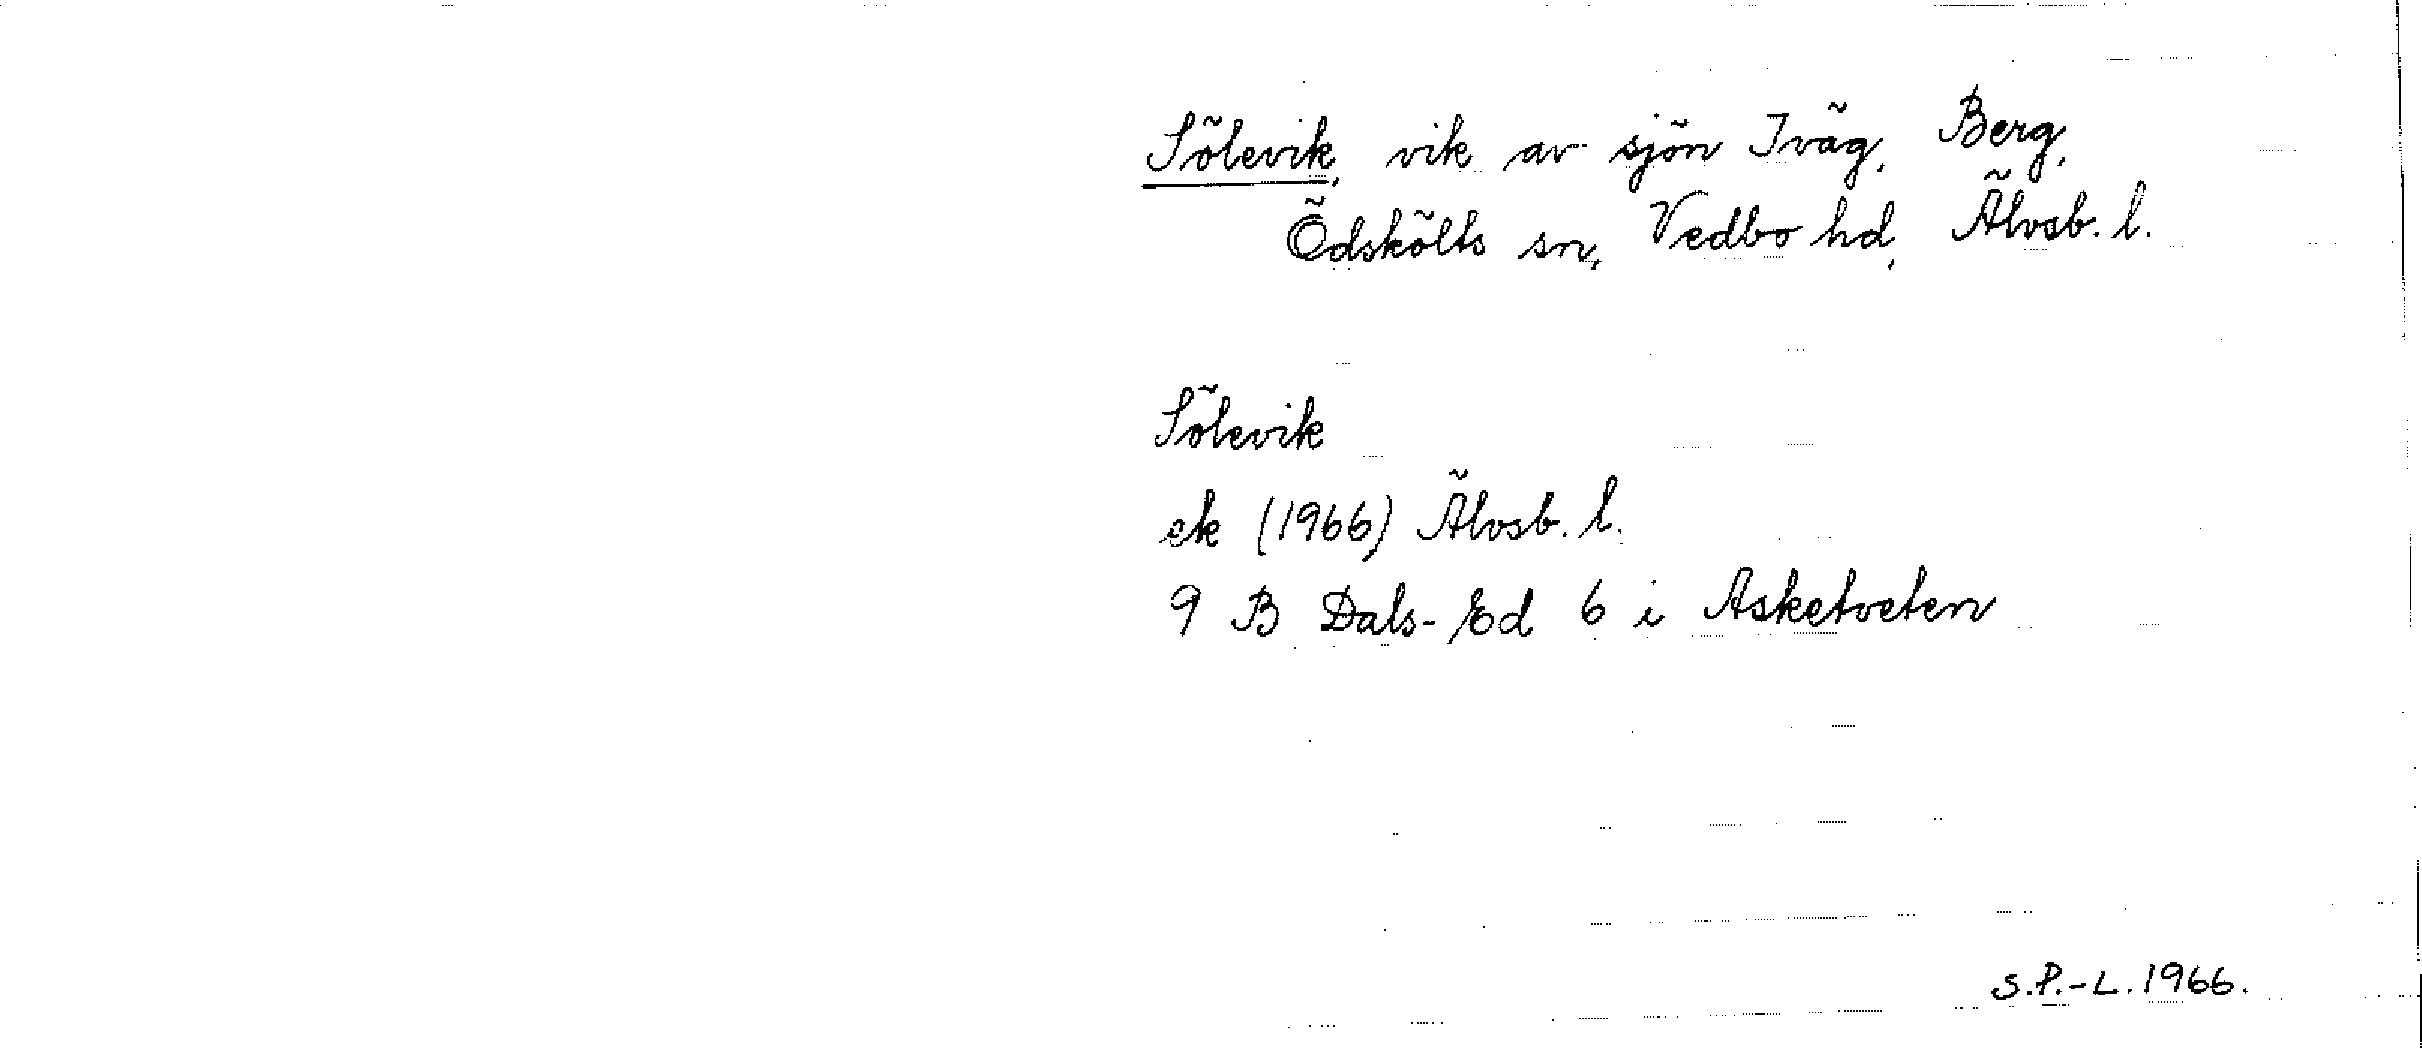 Sölevik, vik av sjön Iväg, Berg,
Ödskölts sn, Vedbo hd, Älvsb. l.
Sölevik
ek (1966) Älvsb. l.
9 B Dals-Ed 6 i Asketveten
S.P.-L. 1966.